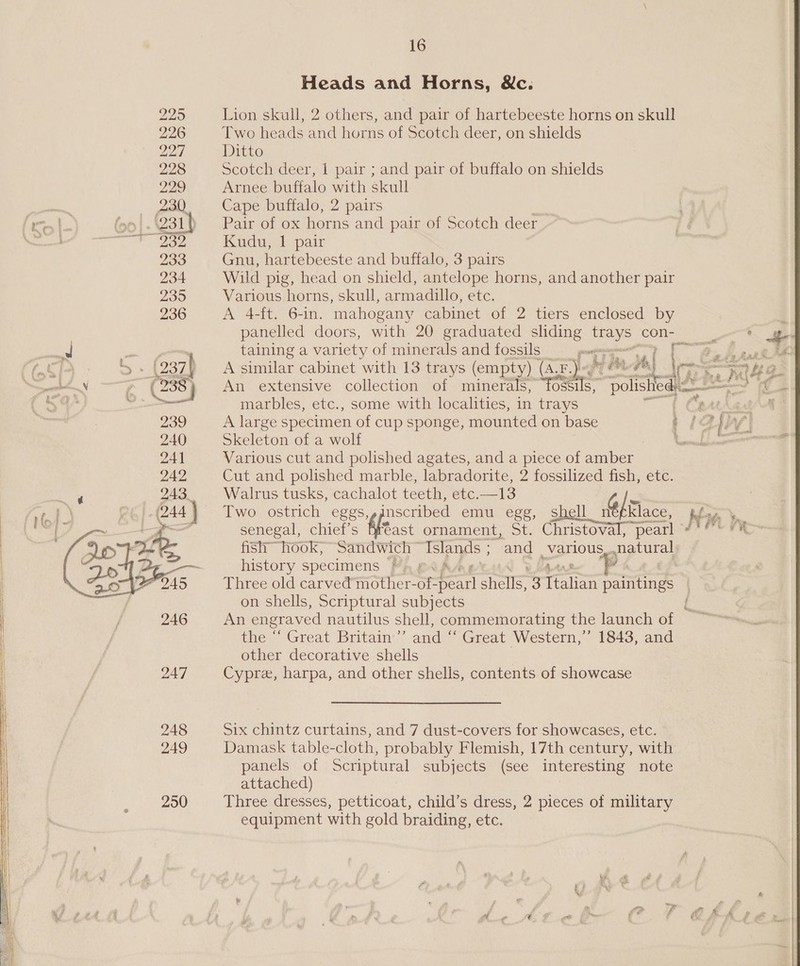 16
Heads and Horns, &c.
225 Lion skull, 2 others, and pair of hartebeeste horns on skull
226 Two heads and horns of Scotch deer, on shields
227 Ditto
228 Scotch deer, 1 pair ; and pair of buffalo on shields
229 Arnee buffalo with skull
230 Cape buffalo, 2 pairs
231 Pair of ox horns and pair of Scotch deer
232 Kudu, 1 pair
233 Gnu, hartebeeste and buffalo, 3 pairs
234 Wild pig, head on shield, antelope horns, and another pair
235 Various horns, skull, armadillo, etc.
236 A 4-ft. 6-in. mahogany cabinet of 2 tiers enclosed by
panelled doors, with 20 graduated sliding trays con-
taining a variety of minerals and fossils
237 A similar cabinet with 13 trays (empty) (A.F.)
238 An extensive collection of minerals, fossils, polished
marbles, etc., some with localities, in trays
239 A large specimen of cup sponge, mounted on base
240 Skeleton of a wolf
241 Various cut and polished agates, and a piece of amber
242 Cut and polished marble, labradorite, 2 fossilized fish, etc.
243 Walrus tusks, cachalot teeth, etc.—13
244 Two ostrich eggs, inscribed emu egg, shell necklace,
senegal, chief's breast ornament, St. Christoval, pearl
fish hook, Sandwich Islands ; and various natural
history specimens
245 Three old carved mother-of-pearl shells, 3 Italian paintings
on shells, Scriptural subjects
246 An engraved nautilus shell, commemorating the launch of
the “ Great Britain ” and “ Great Western,” 1843, and
other decorative shells
247 Cypræ, harpa, and other shells, contents of showcase
248 Six chintz curtains, and 7 dust-covers for showcases, etc.
249 Damask table-cloth, probably Flemish, 17th century, with
panels of Scriptural subjects (see interesting note
attached)
250 Three dresses, petticoat, child's dress, 2 pieces of military
equipment with gold braiding, etc.